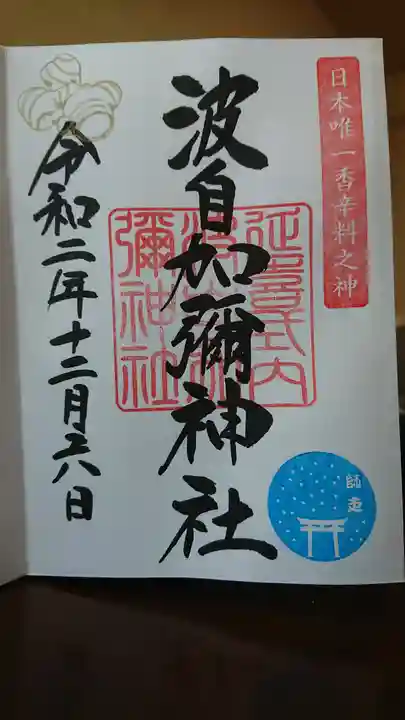 日本唯一香辛料之神
延喜式内
波自加彌神社
彌神社
令和二年十二月六日
師走